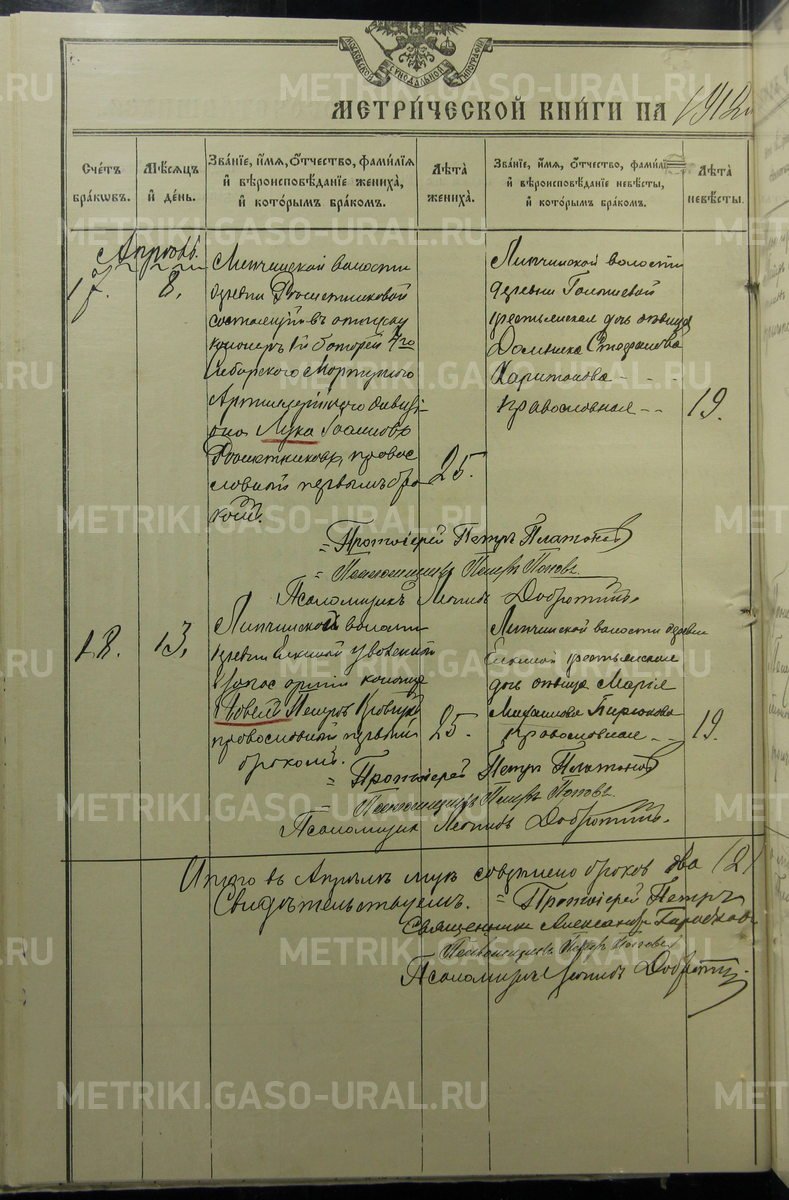 МОСКОВСКОЙ СѴНОДАЛЬНОЙ ТИПОГРАФІИ
МЕТРИ́ЧЕСКОЙ КНИ́ГИ НА 1912
Сче́тъ бра́кѡвъ.
Мѣ́сяцъ и҆ де́нь.
Зва́нїе, и҆́мѧ, ѻ҆́тчество, фами́лїѧ и҆ вѣроисповѣ́данїе жениха̀, и҆ кото́рымъ бра́комъ.
Лѣта̀ жениха̀.
Зва́нїе, и҆́мѧ, ѻ҆́тчество, фами́лїѧ и҆ вѣроисповѣ́данїе невѣ́сты, и҆ кото́рымъ бра́комъ.
Лѣта̀ невѣ́сты.
Апрѣль.
17.
8.
Липчинской волости
деревни
состоящій въ отпуску
канониръ 1й батареи 4го
Сибирскаго Мортирнаго
Артиллерійскаго дивизі-
она Лука Іоанновъ
правос
лавный первымъ бра
комъ.
25.
Липчинской волости
деревни
крестьянская дочь девица
Домника Стефанова
Харитонова
православная
19.
Протоіерей Петръ Платоновъ
Петръ Поповъ
Псаломщикъ Леонидъ Добротинъ.
18.
13.
Липчинской волости
деревни Еланной уволенный
въ запас арміи
Павелъ Петровъ
православный первымъ
бракомъ.
25.
Липчинской волости деревни
Еланной крестьянская
дочь девица Марія
Михаилова Бирюкова
православная
19.
Протоіерей Петръ Платоновъ
Петръ Поповъ.
Псаломщик Леонидъ Добротинъ.
Итого въ Апрѣлѣ м-цѣ совершено браков два (2)
Свидѣтельствуемъ. Протоіерей Петръ
Священникъ Александръ
Петръ Поповъ
Псаломщикъ Леонидъ Добротин
METRIKI.GASO-URAL.RU